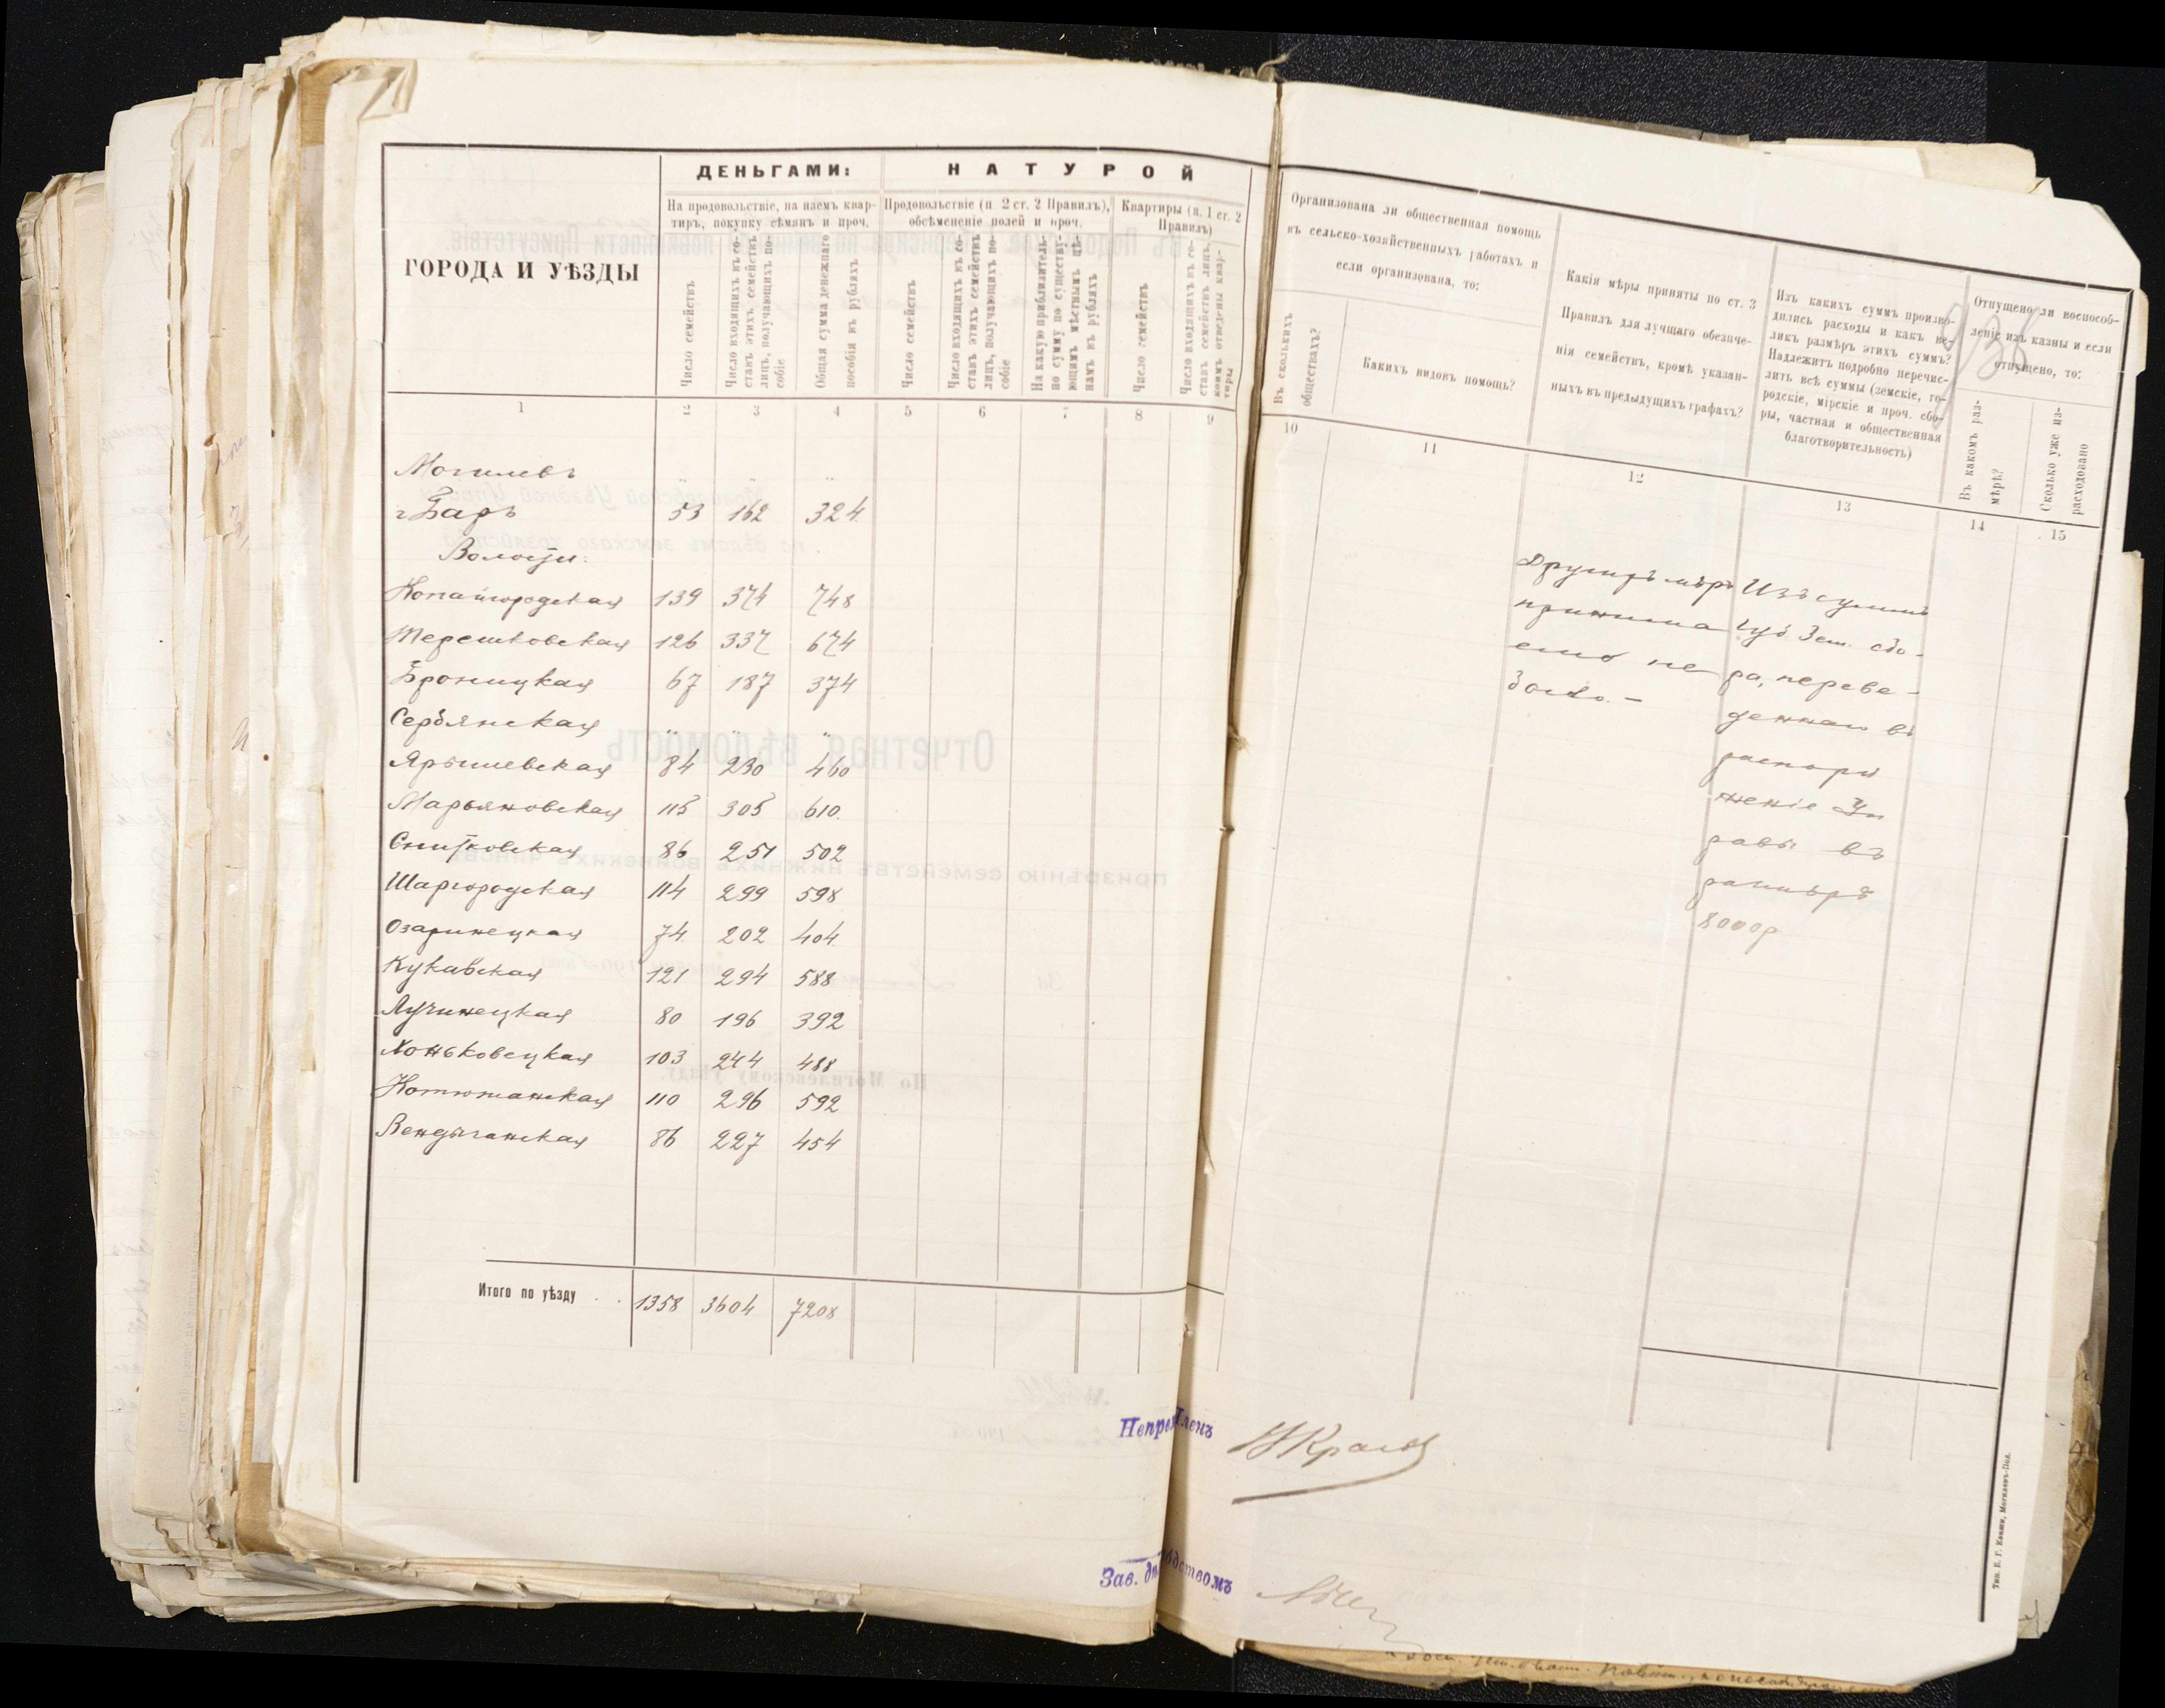 ДЕНЬГАМИ: НАТУРОЙ
ГОРОДА И УѢЗДЫ
На продовольствіе, на наемъ квар-
тиръ, покупку сѣмянъ и проч.
Продовольствіе (п. 2 ст. 2 Правилъ),
обсѣмененіе полей и проч.
Квартиры (п. 1 ст. 2
Правилъ)
Число семействъ
Число входящихъ въ со-
ставъ этихъ семействъ
лицъ, получающихъ по-
собіе
Общая сумма денежнаго
пособія въ рубляхъ
Число семействъ
Число входящихъ въ со-
ставъ этихъ семействъ
лицъ, получающихъ по-
собіе
На какую приблизитель-
но сумму по существу-
ющимъ мѣстнымъ цѣ-
намъ въ рубляхъ
Число семействъ
Число входящихъ въ со-
ставъ семействъ лицъ,
коимъ отведены квар-
тиры
1 2 3 4 5 6 7 8 9
Могилевъ " " "
г Баръ 53 162 324
Волости:
Копайгородская 139 374 748
Терешковская 126 337 674
Броницкая 67 187 374
Сербянская " " "
Ярышевская 84 230 460
Марьяновская 115 305 610
Снитковская 86 251 502
Шаргородская 114 299 598
Озаринецкая 74 202 404
Кукавская 121 294 588
Лучинецкая 80 196 392
Хоньковецкая 103 244 488
Котюжанская 110 296 592
Вендичанская 86 227 454
Итого по уѣзду . . 1358 3604 7208
Организована ли общественная помощь
въ сельско-хозяйственныхъ работахъ и
если организована, то:
Въ сколькихъ
обществахъ?
Какихъ видовъ помощь?
Какія мѣры приняты по ст. 3
Правилъ для лучшаго обезпече-
нія семействъ, кромѣ указан-
ныхъ въ предыдущихъ графахъ?
Изъ какихъ суммъ произво-
дились расходы и какъ ве-
ликъ размѣръ этихъ суммъ?
Надлежитъ подробно перечис-
лить всѣ суммы (земскіе, го-
родскіе, мірскіе и проч. сбо-
ры, частная и общественная
благотворительность)
Отпущено ли воспособ-
леніе изъ казны и если
отпущено, то:
Въ какомъ раз-
мѣрѣ?
Сколько уже из-
расходовано
10 11 12 13 14 15
Другихъ мѣръ
принима
емо не
было. –
Изъ суммъ
губ Зем. сбо-
ра, переве-
деннаго въ
распоря
женіе Уп
равы въ
размѣрѣ
8000р
Членъ
Зав.
Тип. Б. Г. Могилевъ-Под.